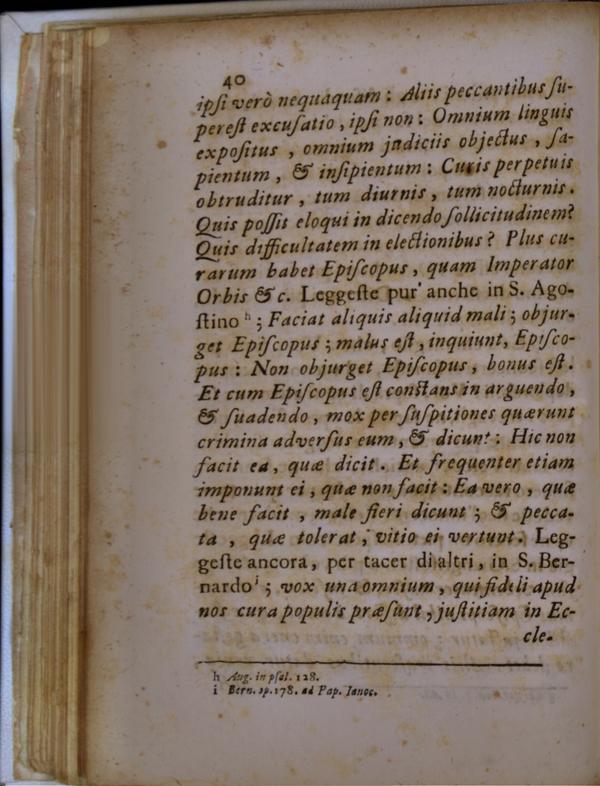 40
ipſi verò nequaquam : Aliis peccantibus ſu-
pereſt excuſatio , ipſi non : Omnium linguis
expoſitus , omnium judiciis objectus , ſa-
pientum , & inſipientum : Curis perpetuis
obtruditur , tum diurnis , tum nocturnis .
Quis poſſit eloqui in dicendo ſollicitudinem?
Quis difficultatem in electionibus ? Plus cu-
rarum habet Epiſcopus , quam Imperator
Orbis & c. Leggeſte pur' anche in S. Ago-
ſtino h ; Faciat aliquis aliquid mali ; objur-
get Epiſcopus ; malus eſt , inquiunt, Epiſco-
pus : Non objurget Epiſcopus , bonus eſt .
Et cum Epiſcopus eſt conſtans in arguendo ,
& ſuadendo , mox per ſuſpitiones quærunt
crimina adverſus eum , & dicunt : Hic non
facit ea , quæ dicit . Et frequenter etiam
imponunt ei , quæ non facit : Ea vero , quæ
bene facit , male fieri dicunt ; & pecca-
ta , quæ tolerat , vitio ei vertunt . Leg-
geſte ancora, per tacer di altri, in S. Ber-
nardo i ; vox una omnium , qui fideli apud
nos cura populis præſunt , juſtitiam in Ec-
cle-
h Aug. in pſal. 128.
i Bern. ep. 178. ad Pap. Innoc.